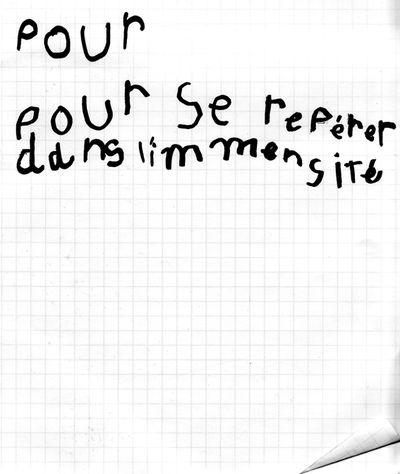 pour
pour se repérer
dans l'immensité